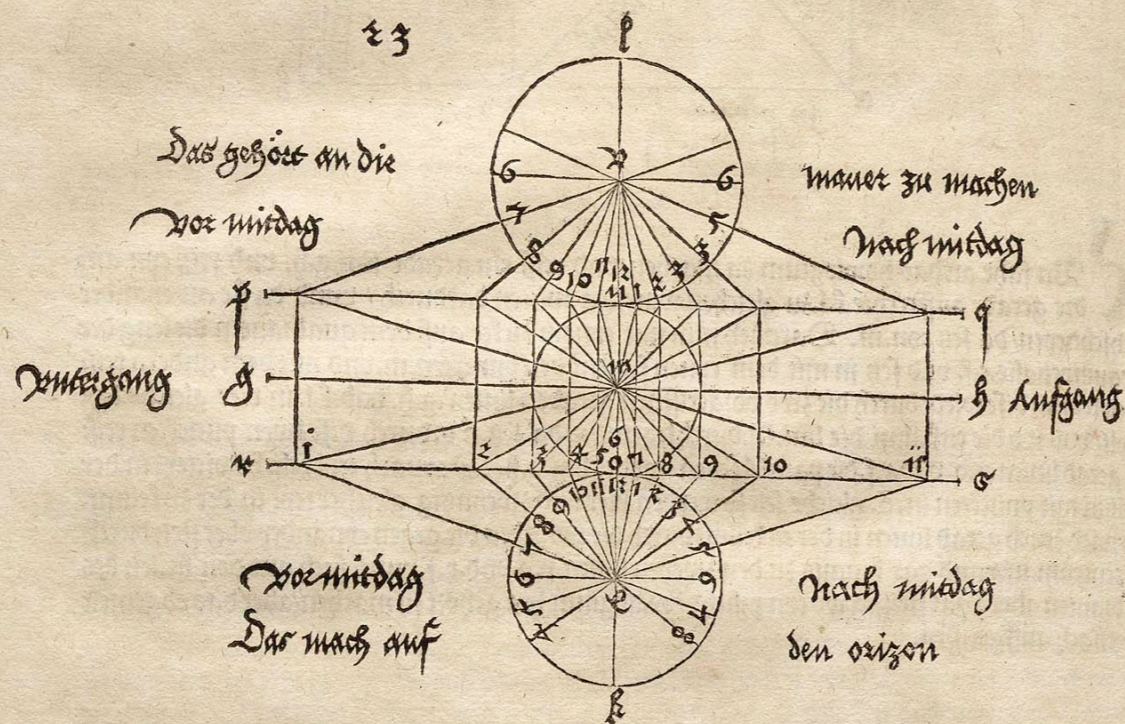 23
l
Das gehört an die
mauer zu machen
Vor mitdag
Nach mitdag
6 6
7 5
8 9 10 11 12 1 2 3 3
p q
m
Untergang g h Aufgang
r s
i 2 3 4 5 6 7 8 9 10 11
9 10 11 12 1 2 3
8 4
7 5
6 6
5 7
4 8
Vor mitdag
Nach mitdag
Das mach auf
den orizon
k